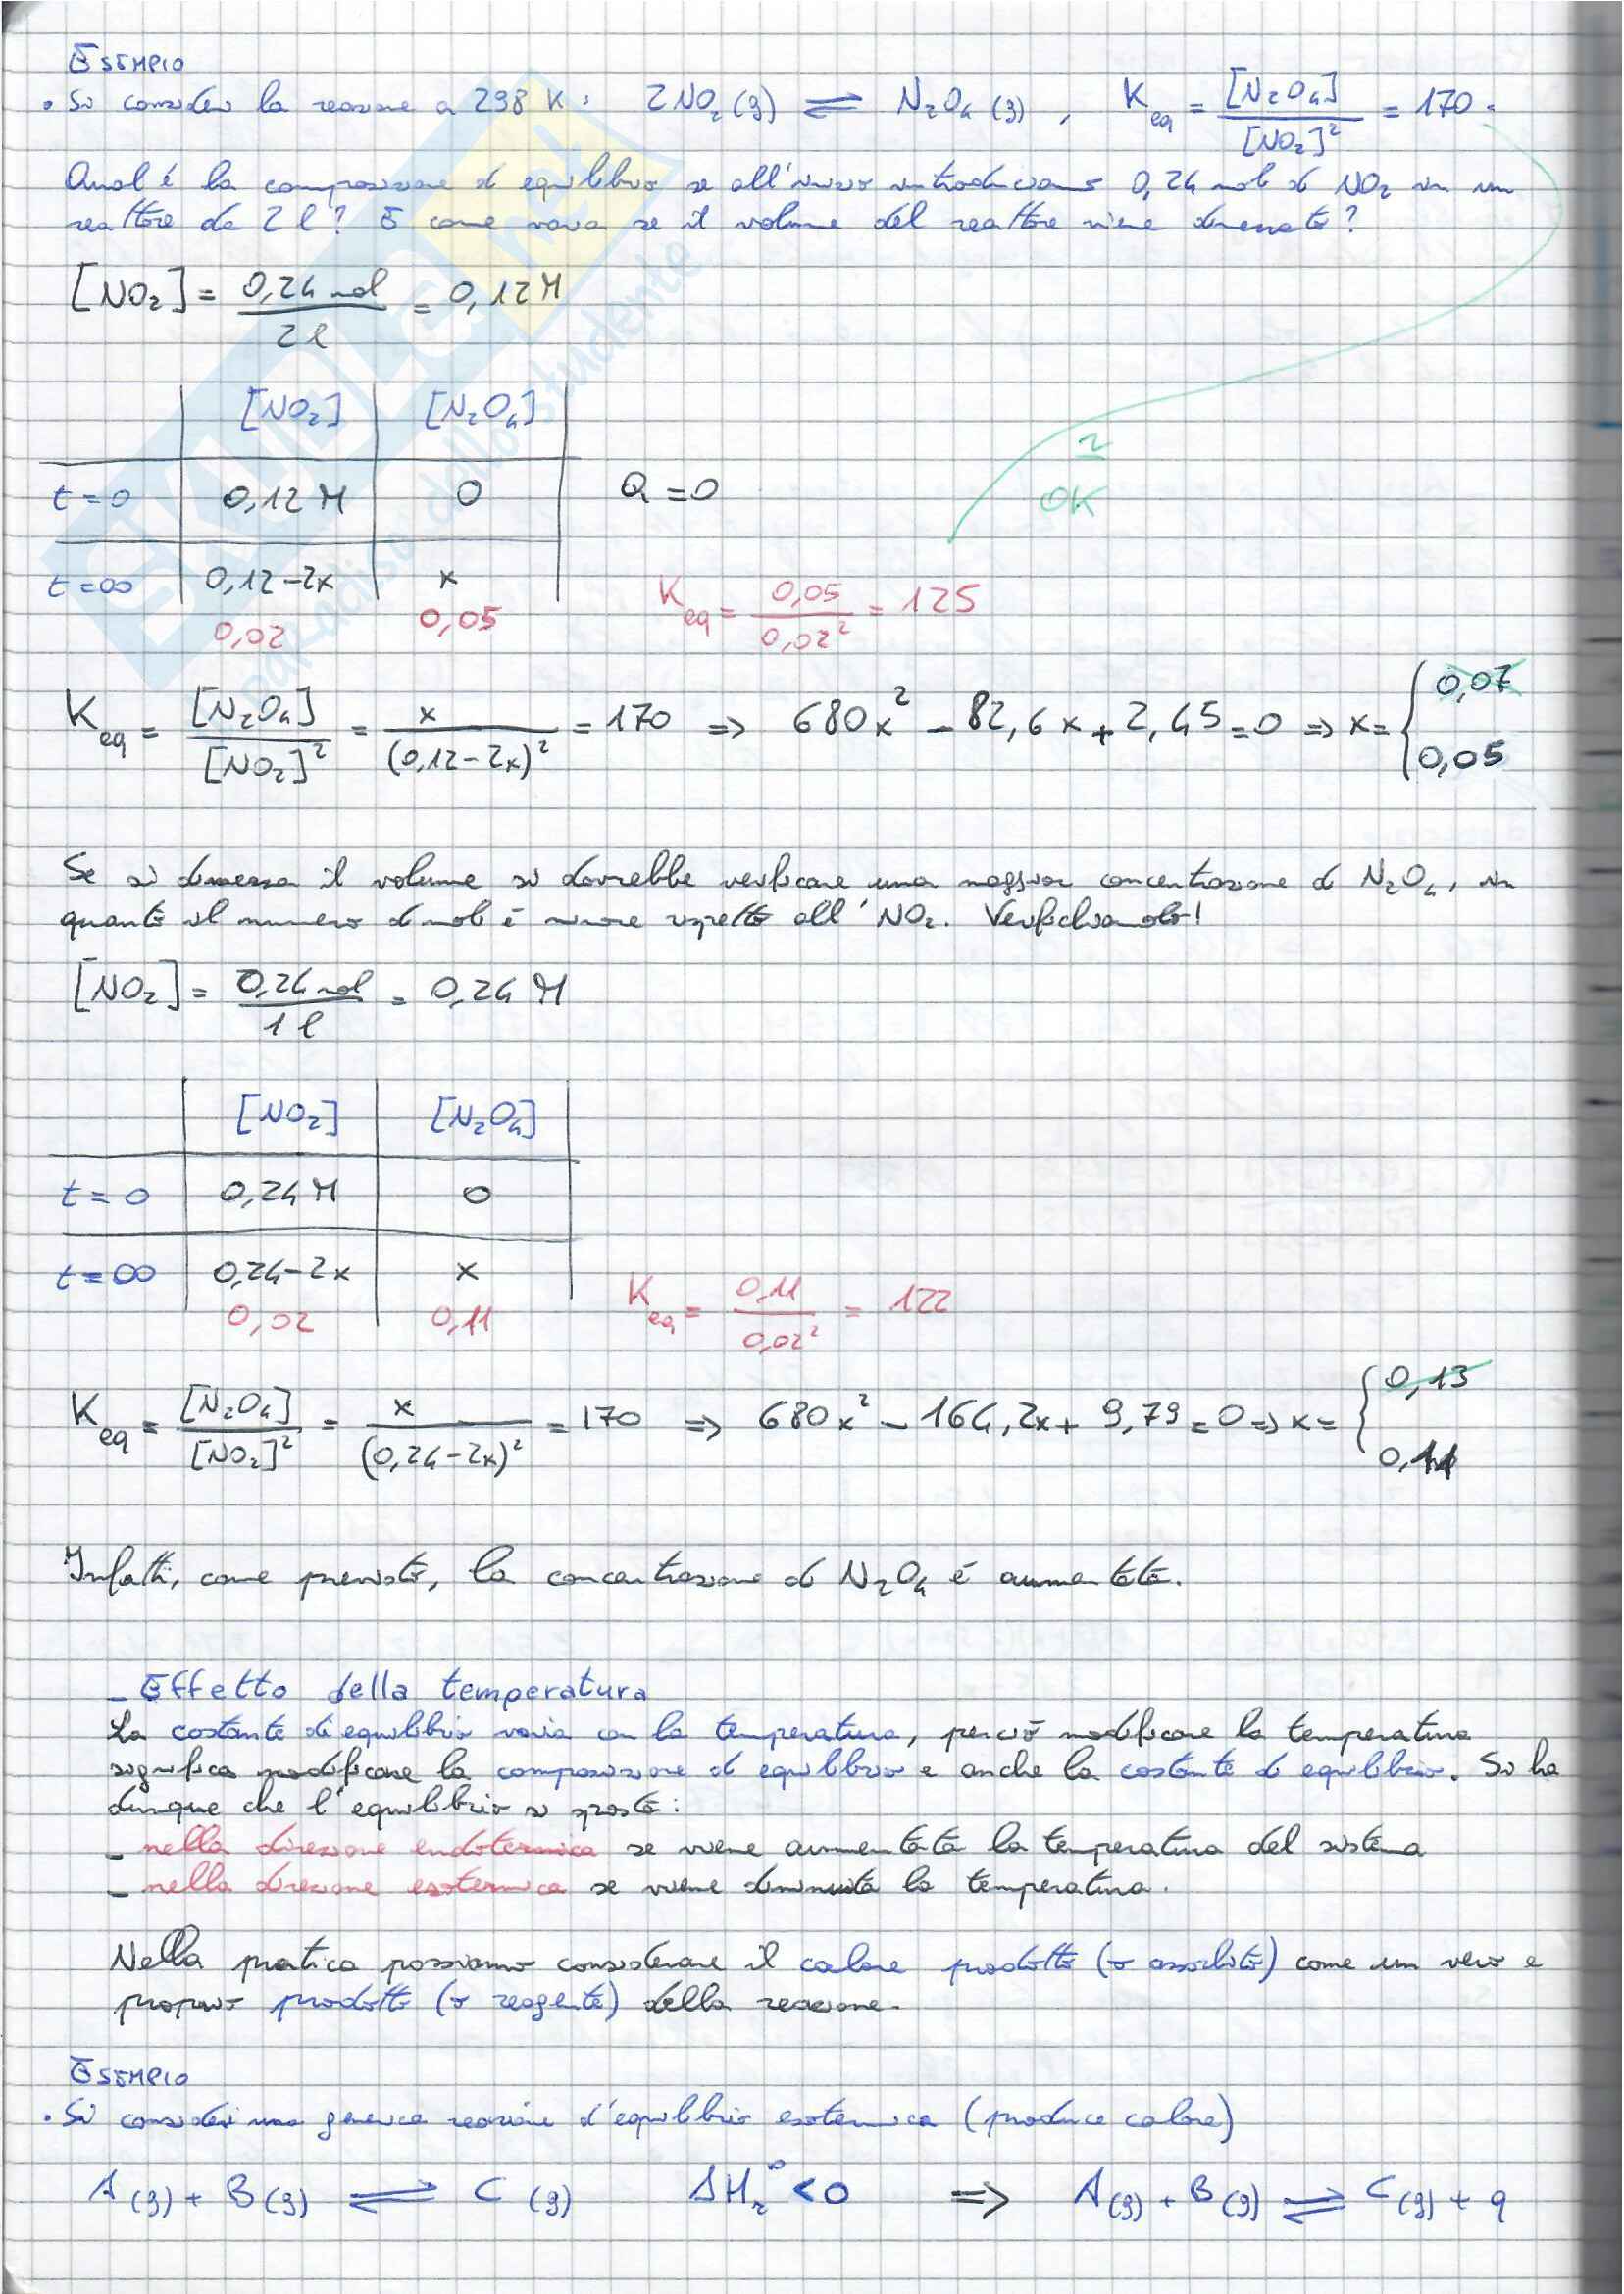 ESEMPIO
• Si consideri la reazione a 298 K: 2NO₂(g) ⇌ N₂O₄(g), K_eq = [N₂O₄] / [NO₂]² = 170.
Qual è la composizione di equilibrio se all'inizio introduciamo 0,24 mol di NO₂ in un
reattore da 2 l? E come varia se il volume del reattore viene dimezzato?
[NO₂] = 0,24 mol / 2 l = 0,12 M
[NO₂] [N₂O₄]
t=0 0,12 M 0 Q = 0
≈ OK
t=∞ 0,12-2x x
0,02 0,05 K_eq = 0,05 / 0,02² = 125
K_eq = [N₂O₄] / [NO₂]² = x / (0,12-2x)² = 170 => 680x² - 82,6x + 2,45 = 0 => x = { 0,07 0,05
Se si dimezza il volume si dovrebbe verificare una maggior concentrazione di N₂O₄, in
quanto il numero di moli è minore rispetto all'NO₂. Verifichiamolo!
[NO₂] = 0,24 mol / 1 l = 0,24 M
[NO₂] [N₂O₄]
t=0 0,24 M 0
t=∞ 0,24-2x x
0,02 0,11 K_eq = 0,11 / 0,02² = 122
K_eq = [N₂O₄] / [NO₂]² = x / (0,24-2x)² = 170 => 680x² - 164,2x + 9,79 = 0 => x = { 0,13 0,11
Infatti, come previsto, la concentrazione di N₂O₄ è aumentata.
- Effetto della temperatura
La costante di equilibrio varia con la temperatura, perciò modificare la temperatura
significa modificare la composizione di equilibrio e anche la costante di equilibrio. Si ha
dunque che l'equilibrio si sposta:
- nella direzione endotermica se viene aumentata la temperatura del sistema
- nella direzione esotermica se viene diminuita la temperatura.
Nella pratica possiamo considerare il calore prodotto (o assorbito) come un vero e
proprio prodotto (o reagente) della reazione.
ESEMPIO
• Si consideri una generica reazione d'equilibrio esotermica (produce calore)
A(g) + B(g) ⇌ C(g) ΔH_r° < 0 => A(g) + B(g) ⇌ C(g) + q